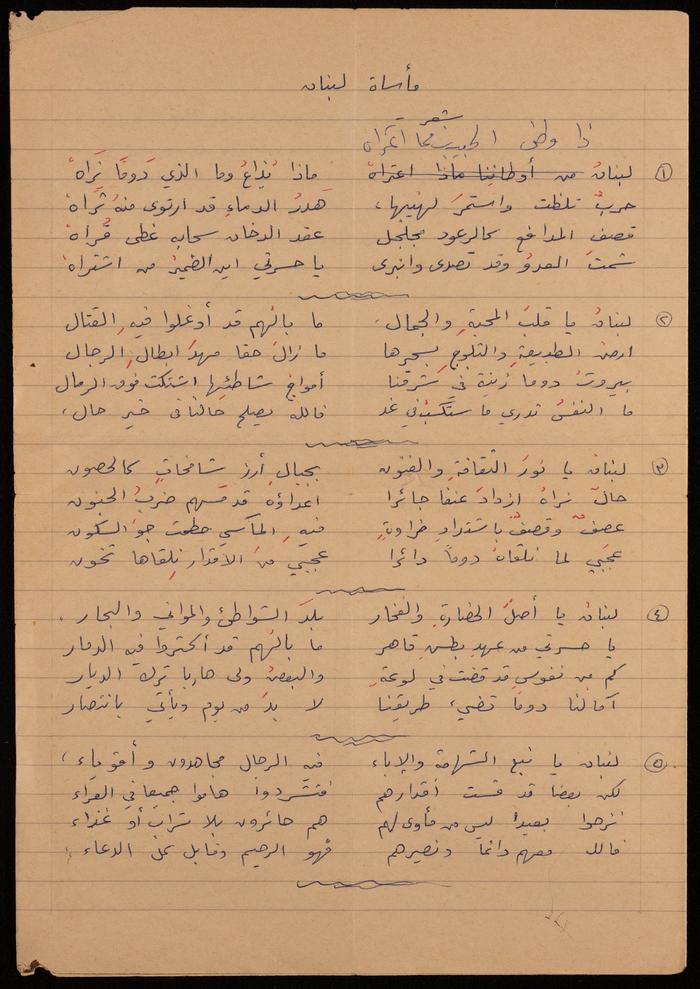 مأساة لبنان
شعر
ذا وطني الحبيب مما اعتراه
١ لبنان من أوطاننا ماذا اعتراهُ ماذا نُذِاعُ وما الذي دَومًا نَراهُ
حربٌ تلظت واستمرَ لهيبها، هَدرُ الدماءِ قد ارتوى منهُ ثَراهُ
قصف المدافع كالرعود مجلجل عقد الدخان سحابه غطى قُراهُ
شمتَ العدوُ وقد تصدى وانبرى يا حسرتي اين الضميرُ من اشتراهُ
٢ لبنانُ يا قلبَ المحبةِ والجمال، ما بالُهم قد أوغلوا فيهِ القتال
ارضُ الطبيعةِ والثلوجِ بسحرها ما زالَ حقا مهدَ ابطالِ الرجال
بيروتُ دوما زينة في شرقنا أمواجُ شاطئِها اشتكت فوق الرمال
ما النفسُ تدري ما ستكسبُ في غد فالله يصلح حالنا في خير حال،
٣ لبنان يا نورَ الثقافةِ والفنون بجبالِ أرزٍ شامخاتٍ كالحصون
حالٌ نراهُ ازدادَ عنفًا جائرا اعداؤهُ قد مسهم ضربُ الجنون
عصفٌ وقصفٌ باشتدادِ ضراوةٍ فيهِ المآسي حطمت جوَ السكون
عجبي لما نلقاهُ دوماً دائرا عجبي من الأقدار نلقاها تخون
٤ لبنان يا أصلَ الحضارةِ والفخار بلدَ الشواطئ والمواني والبحار،
يا حسرتي من عهدِ بطشٍ قاهر ما بالُهم قد أكثروا فيه الدمار
كم من نفوسٍ قد قضت في لوعةٍ والبعضُ ولى هاربا تركَ الديار
آمالنا دوما تضيء طريقنا لا بدَ من يوم ويأتي بانتصار
٥ لبنان يا نبع الشهامة والإباء فيه الرجال مجاهدون وأقوياء،
لكن بعضا قد قست أقدارهم فتشردوا هاموا جميعا في العراء
نزحوا بعيدا ليس من مأوى لهم هم حائرون بلا شرابٍ أو غذاء
فالله معهم دائماً ونصيرهم فهو الرحيم وقابل كل الدعاء،